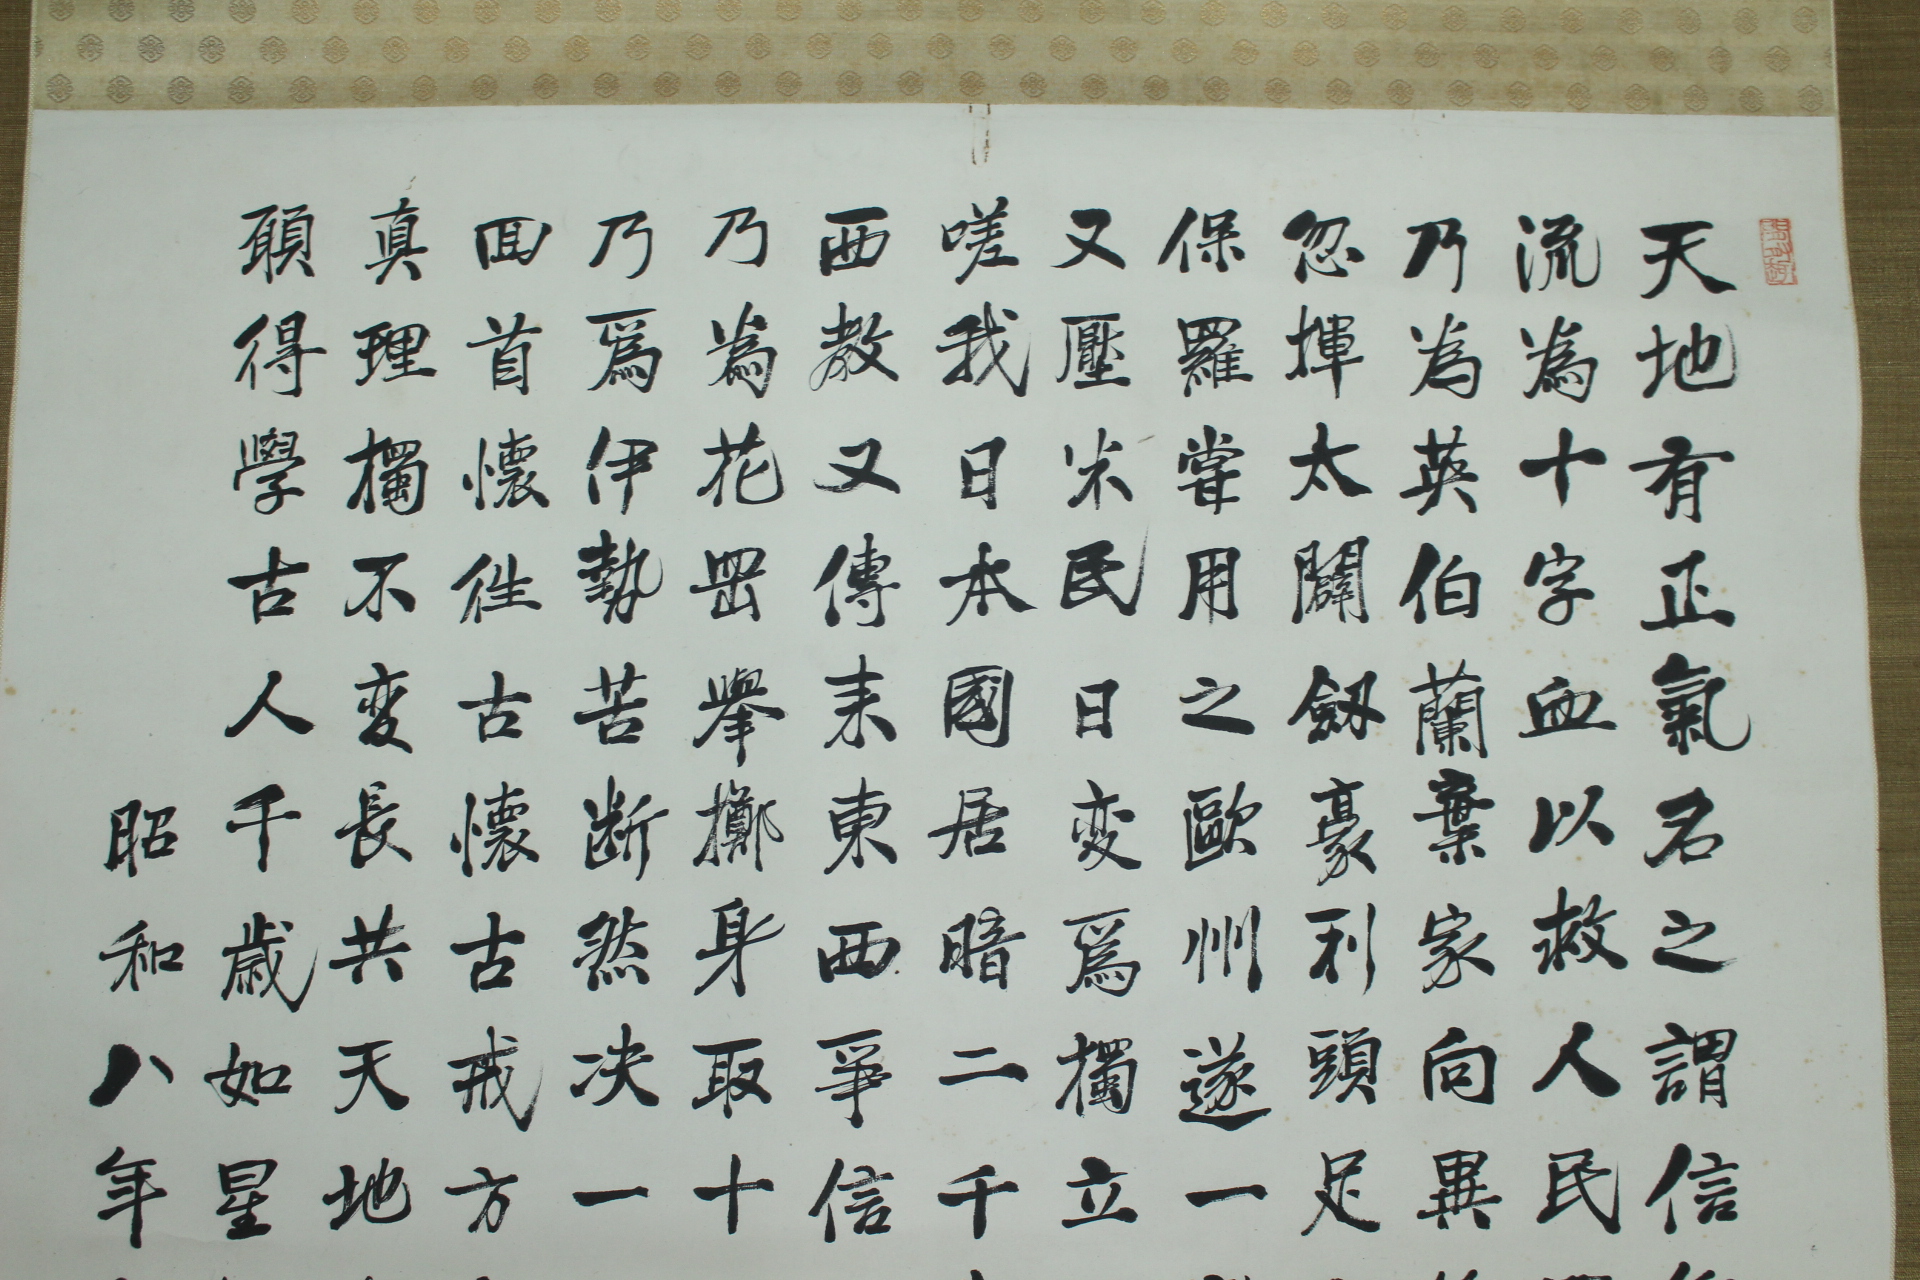 天地有正氣名之謂信
流為十字血以救人民
乃為英伯蘭棄家向異
忽揮太闢劔豪利頭足
保羅嘗用之歐州遂一
又壓米民日变爲獨立
嗟我日本國居暗二千
西教又傳来東西爭信
乃為花岡擧擲身取十
乃爲伊勢苦断然决一
回首懐往古懐古戒方
真理獨不变長共天地
願得學古人千歳如星
昭和八年